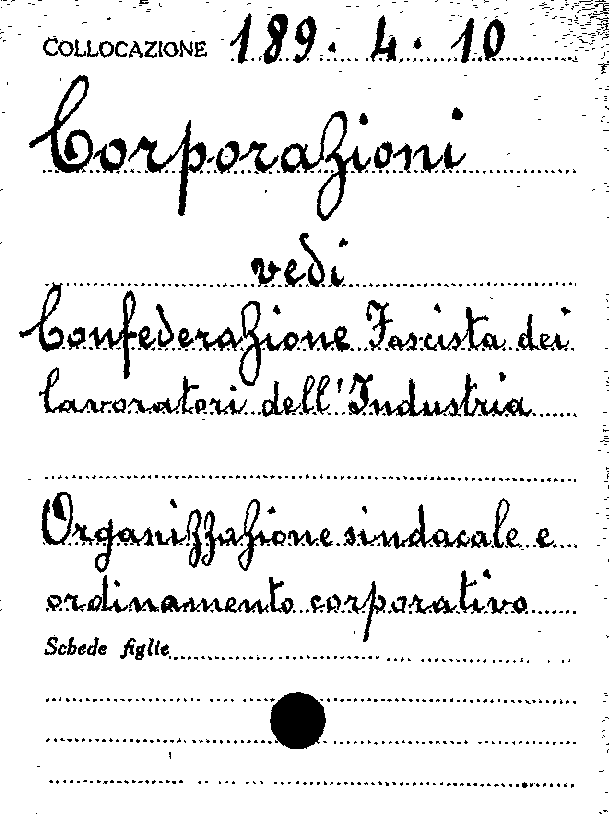 COLLOCAZIONE 189. 4. 10
Corporazioni
vedi
Confederazione Fascista dei
lavoratori dell'Industria
Organizzazione sindacale e
ordinamento corporativo
Schede figlie